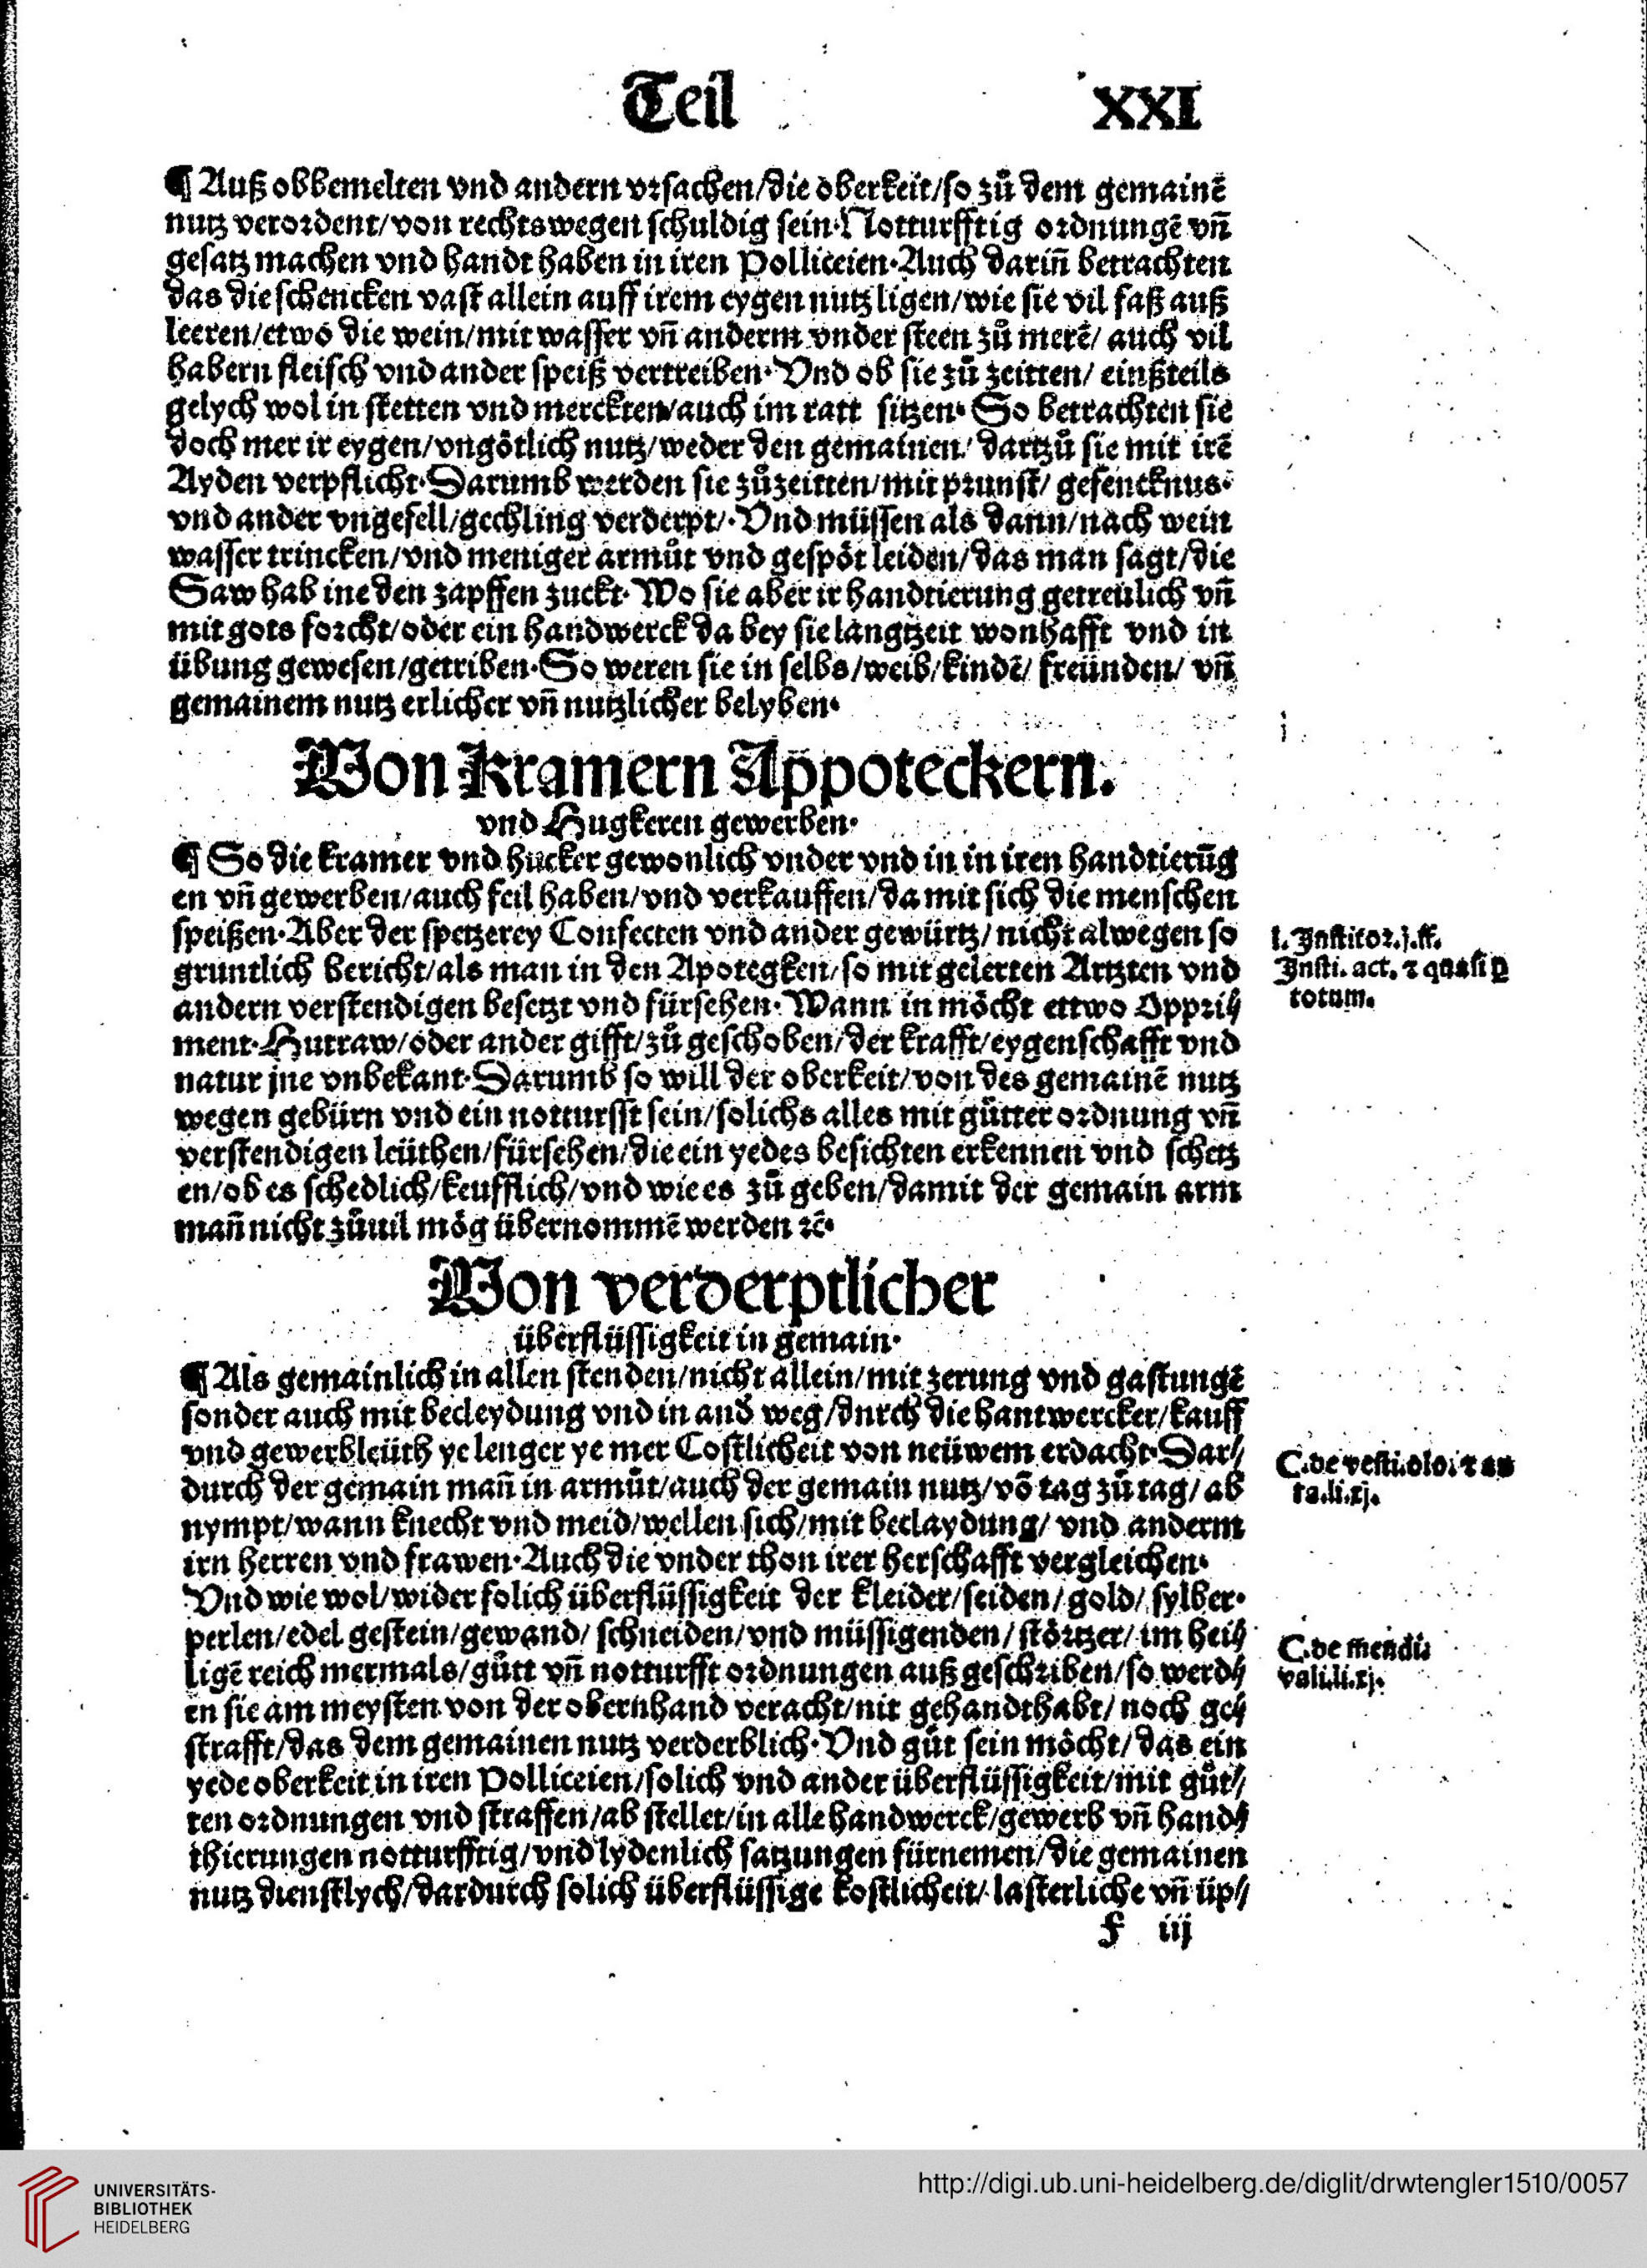 Teil XXI
¶ Auß obbemelten vnd andern vꝛsachen/die oberkeit/so zů dem gemainē
nutz veroꝛdent/von rechtswegen schuldig sein·Notturfftig oꝛdnungē vn̄
gesatz machen vnd handt haben in iren Polliceien·Auch darin̄ betrachten
das die schencken vast allein auff irem eygen nutz ligen/wie sie vil faß auß
leeren/etwo die wein/mit wasser vn̄ anderm vnder steen zů merē/ auch vil
habern fleisch vnd ander speiß vertreiben·Vnd ob sie zů zeitten/ einßteils
gelych wol in stetten vnd merckten/auch im ratt sitzen·So betrachten sie
doch mer ir eygen/vngötlich nutz/weder den gemainen/ dartzů sie mit irē
Ayden verpflicht·Darumb werden sie zůzeitten/mit pꝛunst/ gefencknus·
vnd ander vngefell/gechling verderpt/·Vnd müssen als dann/nach wein
wasser trincken/vnd meniger armůt vnd gespöt leiden/das man sagt/die
Saw hab ine den zapffen zuckt·Wo sie aber ir handtierung getreülich vn̄
mit gots foꝛcht/oder ein handwerck da bey sie langtzeit wonhafft vnd in
übung gewesen/getriben·So weren sie in selbs/weib/kindē/ freünden/ vn̄
gemainem nutz erlicher vn̄ nutzlicher belyben·
Von Kramern Appoteckern.
vnd Hugkeren gewerben·
¶ So die kramer vnd hucker gewonlich vnder vnd in in iren handtierūg
en vn̄ gewerben/auch feil haben/vnd verkauffen/da mit sich die menschen
speißen·Aber der spetzerey Confecten vnd ander gewürtz/nicht alwegen so
gruntlich bericht/als man in den Apotegken/so mit gelerten Artzten vnd
andern verstendigen besetzt vnd fürsehen·Wann in möcht ettwo Oppꝛi⸗
ment·Hutraw/oder ander gifft/zů geschoben/der krafft/eygenschafft vnd
natur jne vnbekant·Darumb so will der oberkeit/von des gemainē nutz
wegen gebürn vnd ein notturfft sein/solichs alles mit gůtter oꝛdnung vn̄
verstendigen leüthen/fürsehen/die ein yedes besichten erkennen vnd schetz
en/ob es schedlich/keufflich/vnd wie es zů geben/damit der gemain arm
man̄ nicht zůuil mög übernommē werden ꝛc̄·
l. Institoꝛ.j.ff.
Insti. act. ⁊ quasi ꝑ
totum.
Von verderptlicher
überflüssigkeit in gemain·
¶ Als gemainlich in allen stenden/nicht allein/mit zerung vnd gastungē
sonder auch mit becleydung vnd in and̄ weg/dnrch die hantwercker/kauff
vnd gewerbleüth ye lenger ye mer Costlicheit von neüwem erdacht·Dar⸗
durch der gemain man̄ in armůt/auch der gemain nutz/vō tag zů tag/ ab
nympt/wann knecht vnd meid/wellen sich/mit beclaydung/ vnd anderm
irn herren vnd frawen·Auch die vnder thon irer herschafft vergleichen·
Vnd wie wol/wider solich überflüssigkeit der kleider/seiden/gold/ sylber·
perlen/edel gestein/gewand/ schneiden/vnd müssigenden/störtzer/im hei⸗
ligē reich mermals/gůtt vn̄ notturfft oꝛdnungen auß geschꝛiben/so werd⸗
en sie am meysten von der obernhand veracht/nit gehandthabt/ noch ge⸗
strafft/das dem gemainen nutz verderblich·Vnd gůt sein möcht/das ein
yede oberkeit in iren Polliceien/solich vnd ander überflüssigkeit/mit gůt⸗
ten oꝛdnungen vnd straffen/ab stellet/in alle handwerck/gewerb vn̄ hand⸗
thierungen notturfftig/vnd lydenlich satzungen fürnemen/die gemainen
nutz dienstlych/dardurch solich überflüssige kostlicheit/lasterliche vn̄ üp⸗
C.de vesti.olo.⁊ au
ra.li.xj.
C.de mendi.
vali.li.xj.
f iij
UNIVERSITÄTS-
BIBLIOTHEK
HEIDELBERG
http://digi.ub.uni-heidelberg.de/diglit/drwtengler1510/0057